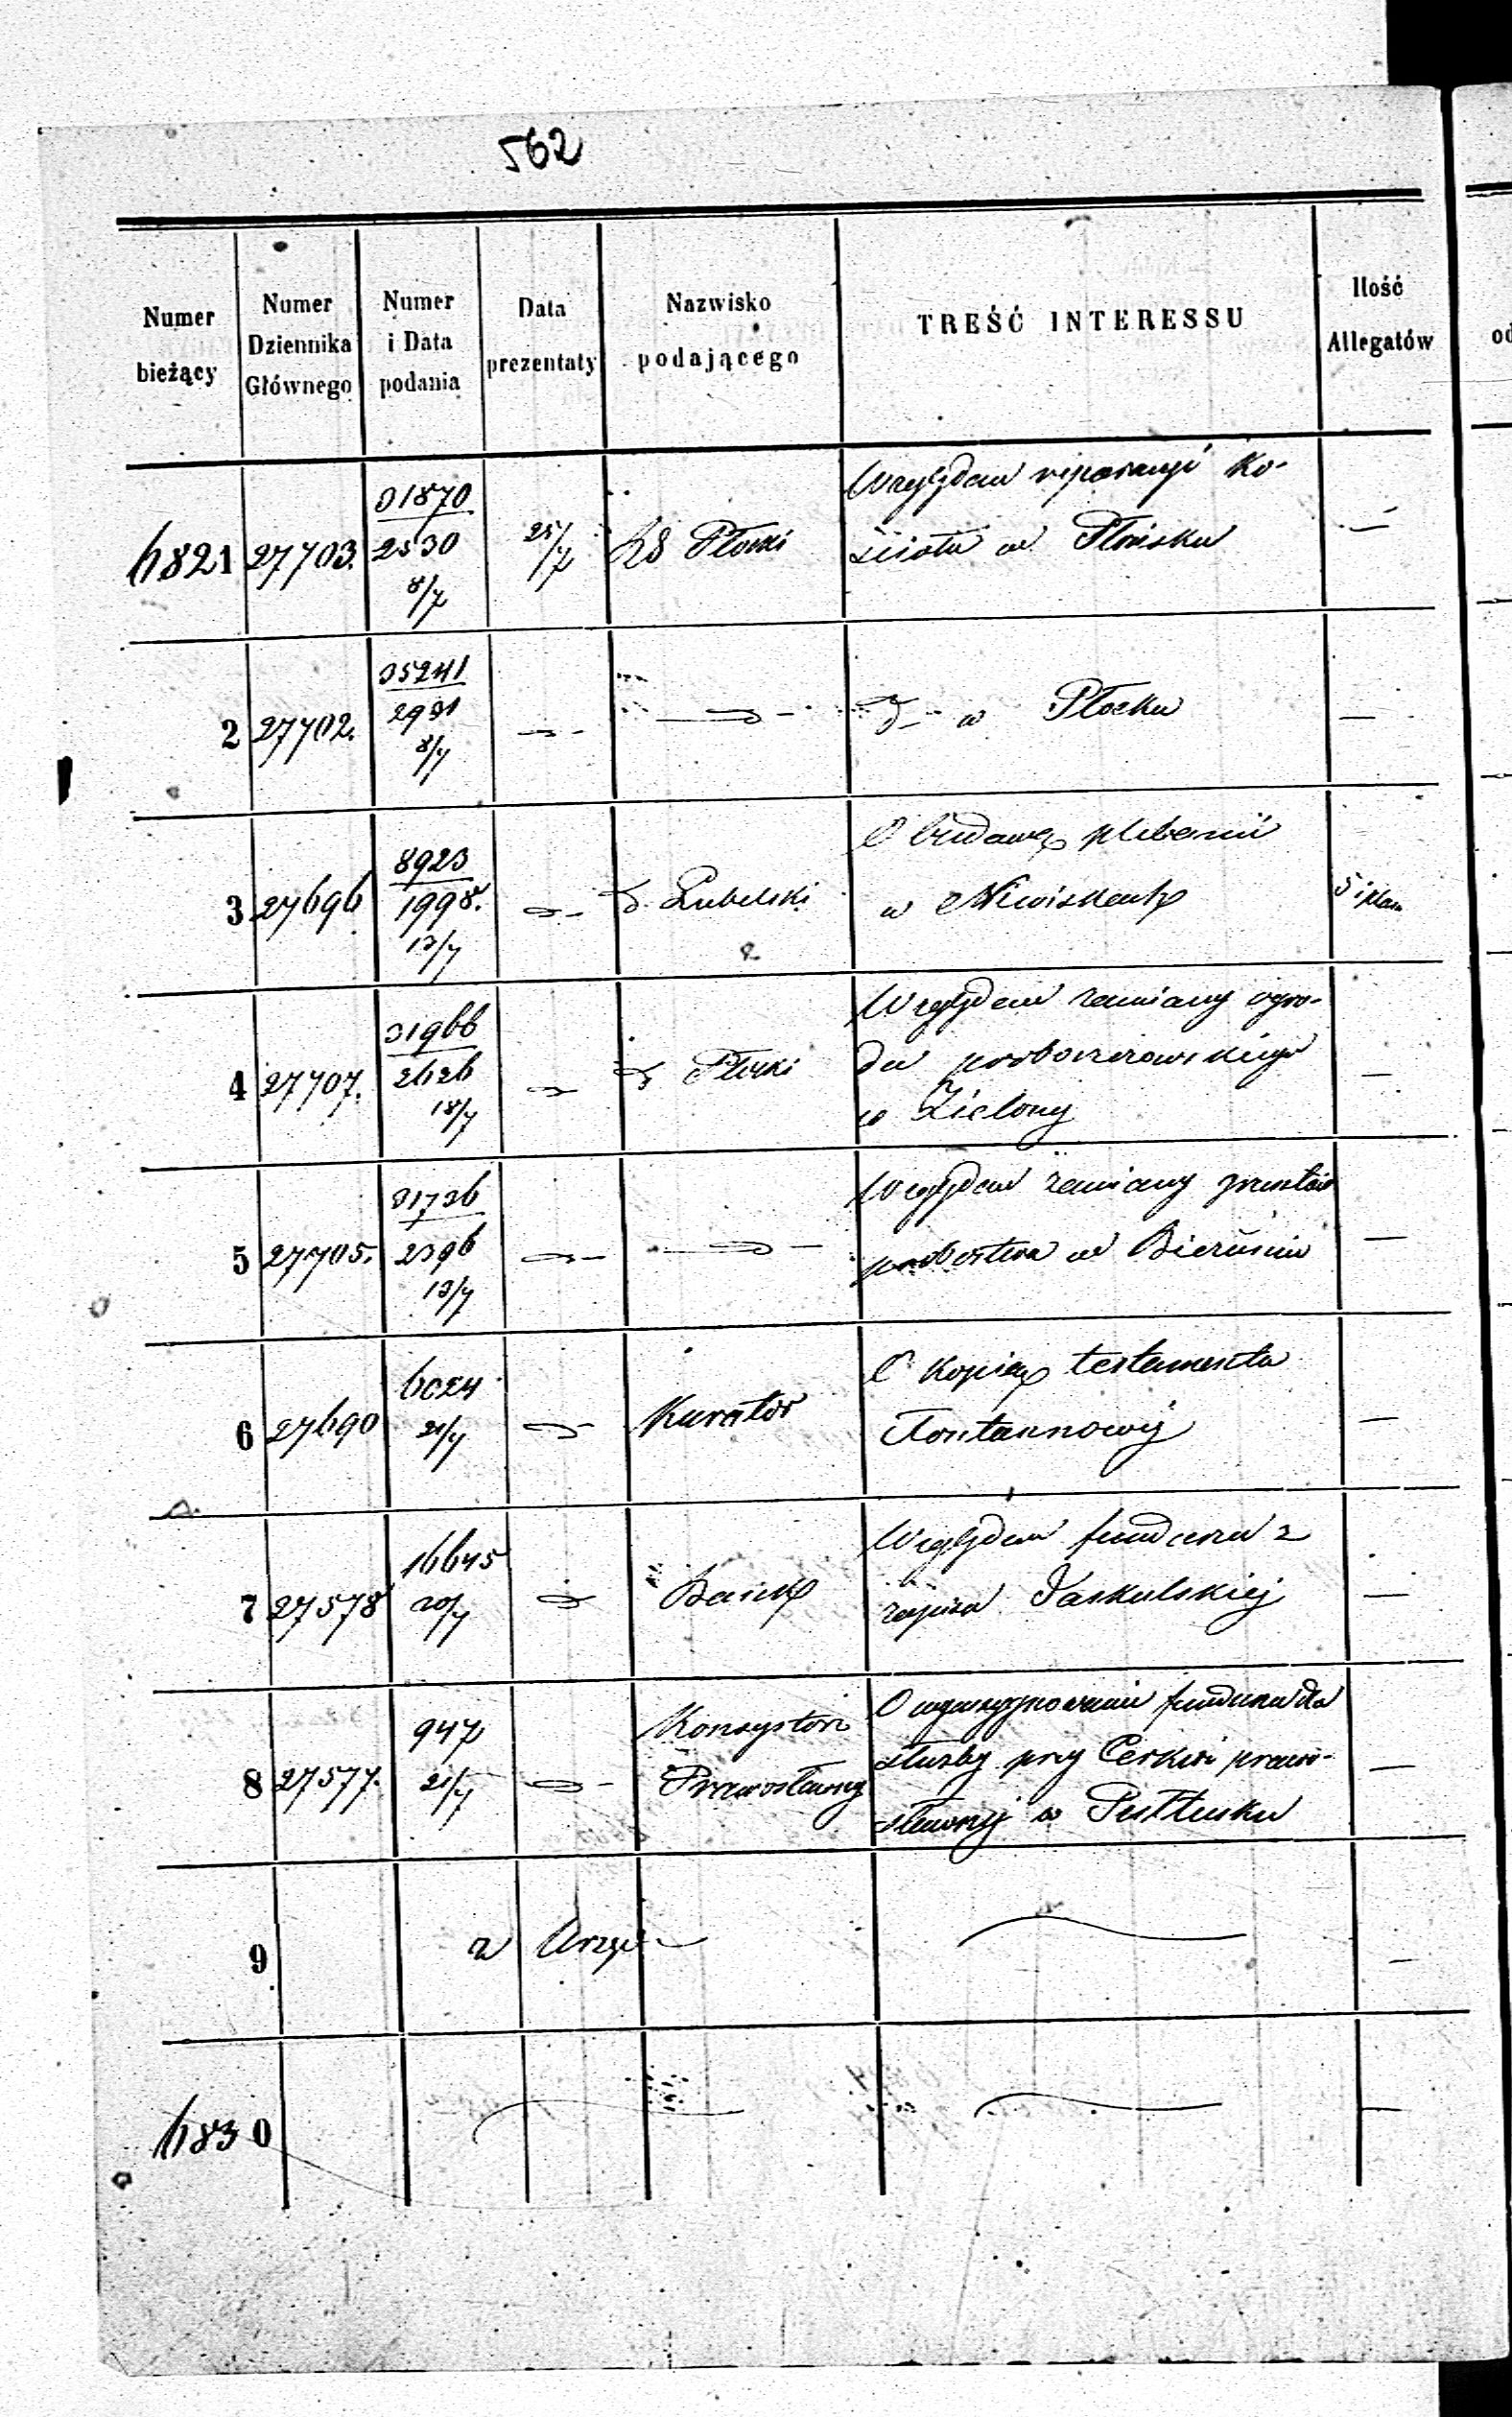 562
Numer bieżący | Numer Dziennika Głównego | Numer i Data podania | Data prezentaty | Nazwisko podającego | TREŚĆ INTERESSU | Ilość Allegatów
6821 | 27703. | 31870 / 2530 8/7 | 25/7 | Płocki | Względem reparacyi Ko-
ścioła w Płońsku | —
2 | 27702. | 35241 / 2931 8/7 | — | — | w Płocku | —
3 | 27696 | 8923 / 1998. 13/7 | — | Lubelski | O budowę plebanii
w Niwiskach | 5 i plan
4 | 27707. | 31966 / 2626 18/7 | — | Płocki | Względem zamiany ogro-
du proboszczowskiego
w Zielony | —
5 | 27705. | 31736 / 2396 13/7 | — | — | Względem zamiany gruntów
probostwa w | —
6 | 27690 | 6024 21/7 | — | Kurator | O kopią testamentu
Fontannowéj | —
7 | 27578 | 16645 20/7 | — | Bank | Względem funduszu z
zapisu Jaskulskiej | —
8 | 27577. | 947 21/7 | — | Konsystorz
Prawosławny | O wyasygnowanie funduszu dla
służby przy Cerkwi prawo-
sławnéj w Pułtusku | —
9 | z Urzędu | —
6830 | —